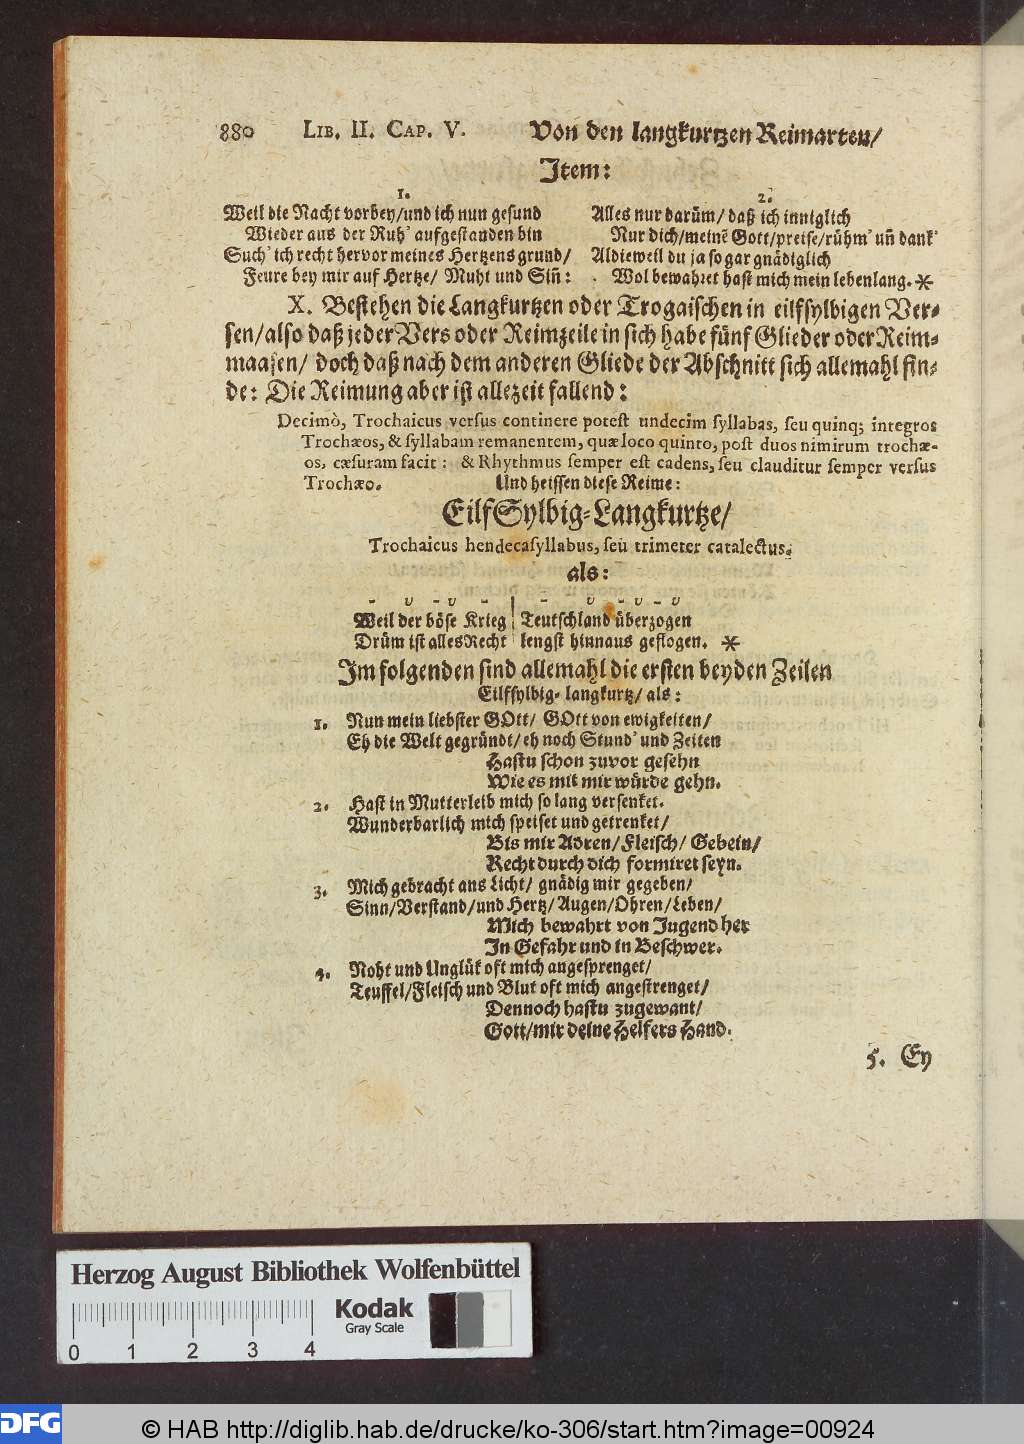 880 LIB. II. CAP. V. Von den langkurtzen Reimarten/
Item:
1.
Weil die Nacht vorbey/und ich nun gesund
Wieder aus der Ruh' aufgestanden bin
Such' ich recht hervor meines Hertzens grund/
Feure bey mir auf Hertze/ Muht und Siñ:
2.
Alles nur darüm/ daß ich inniglich
Nur dich/meinē Gott/preise/rühm' uñ dank'
Aldieweil du ja so gar gnädiglich
Wol bewahret hast mich mein lebenlang. *
X. Bestehen die Langkurtzen oder Trogaischen in eilfsylbigen Ver-
sen/also daß jeder Vers oder Reimzeile in sich habe fünf Glieder oder Reim-
maasen/ doch daß nach dem anderen Gliede der Abschnitt sich allemahl fin-
de: Die Reimung aber ist allezeit fallend:
Decimò, Trochaicus versus continere potest undecim syllabas, seu quinq; integros
Trochæos, & syllabam remanentem, quæ loco quinto, post duos nimirum trochæ-
os, cæsuram facit: & Rhythmus semper est cadens, seu clauditur semper versus
Trochæo. Und heissen diese Reime:
EilfSylbig-Langkurtze/
Trochaicus hendecasyllabus, seu trimeter catalectus.
als:
- υ - υ - | - υ - υ - υ
Weil der böse Krieg | Teutschland überzogen
Drüm ist alles Recht | lengst hinnaus geflogen. *
Im folgenden sind allemahl die ersten beyden Zeilen
Eilfsylbig-langkurtz/ als:
1. Nun mein liebster GOtt/ GOtt von ewigkeiten/
Eh die Welt gegründt/eh noch Stund' und Zeiten
Hastu schon zuvor gesehn
Wie es mit mir würde gehn.
2. Hast in Mutterleib mich so lang versenket.
Wunderbarlich mich speiset und getrenket/
Bis mir Adren/Fleisch/ Gebein/
Recht durch dich formiret seyn.
3. Mich gebracht ans Licht/ gnädig mir gegeben/
Sinn/Verstand/und Hertz/Augen/Ohren/Leben/
Mich bewahrt von Jugend her
In Gefahr und in Beschwer.
4. Noht und Unglük oft mich angesprenget/
Teuffel/Fleisch und Blut oft mich angestrenget/
Dennoch hastu zugewant/
Gott/mir deine Helfers Hand.
5. Ey
Herzog August Bibliothek Wolfenbüttel
Kodak
Gray Scale
0 1 2 3 4
DFG
© HAB http://diglib.hab.de/drucke/ko-306/start.htm?image=00924